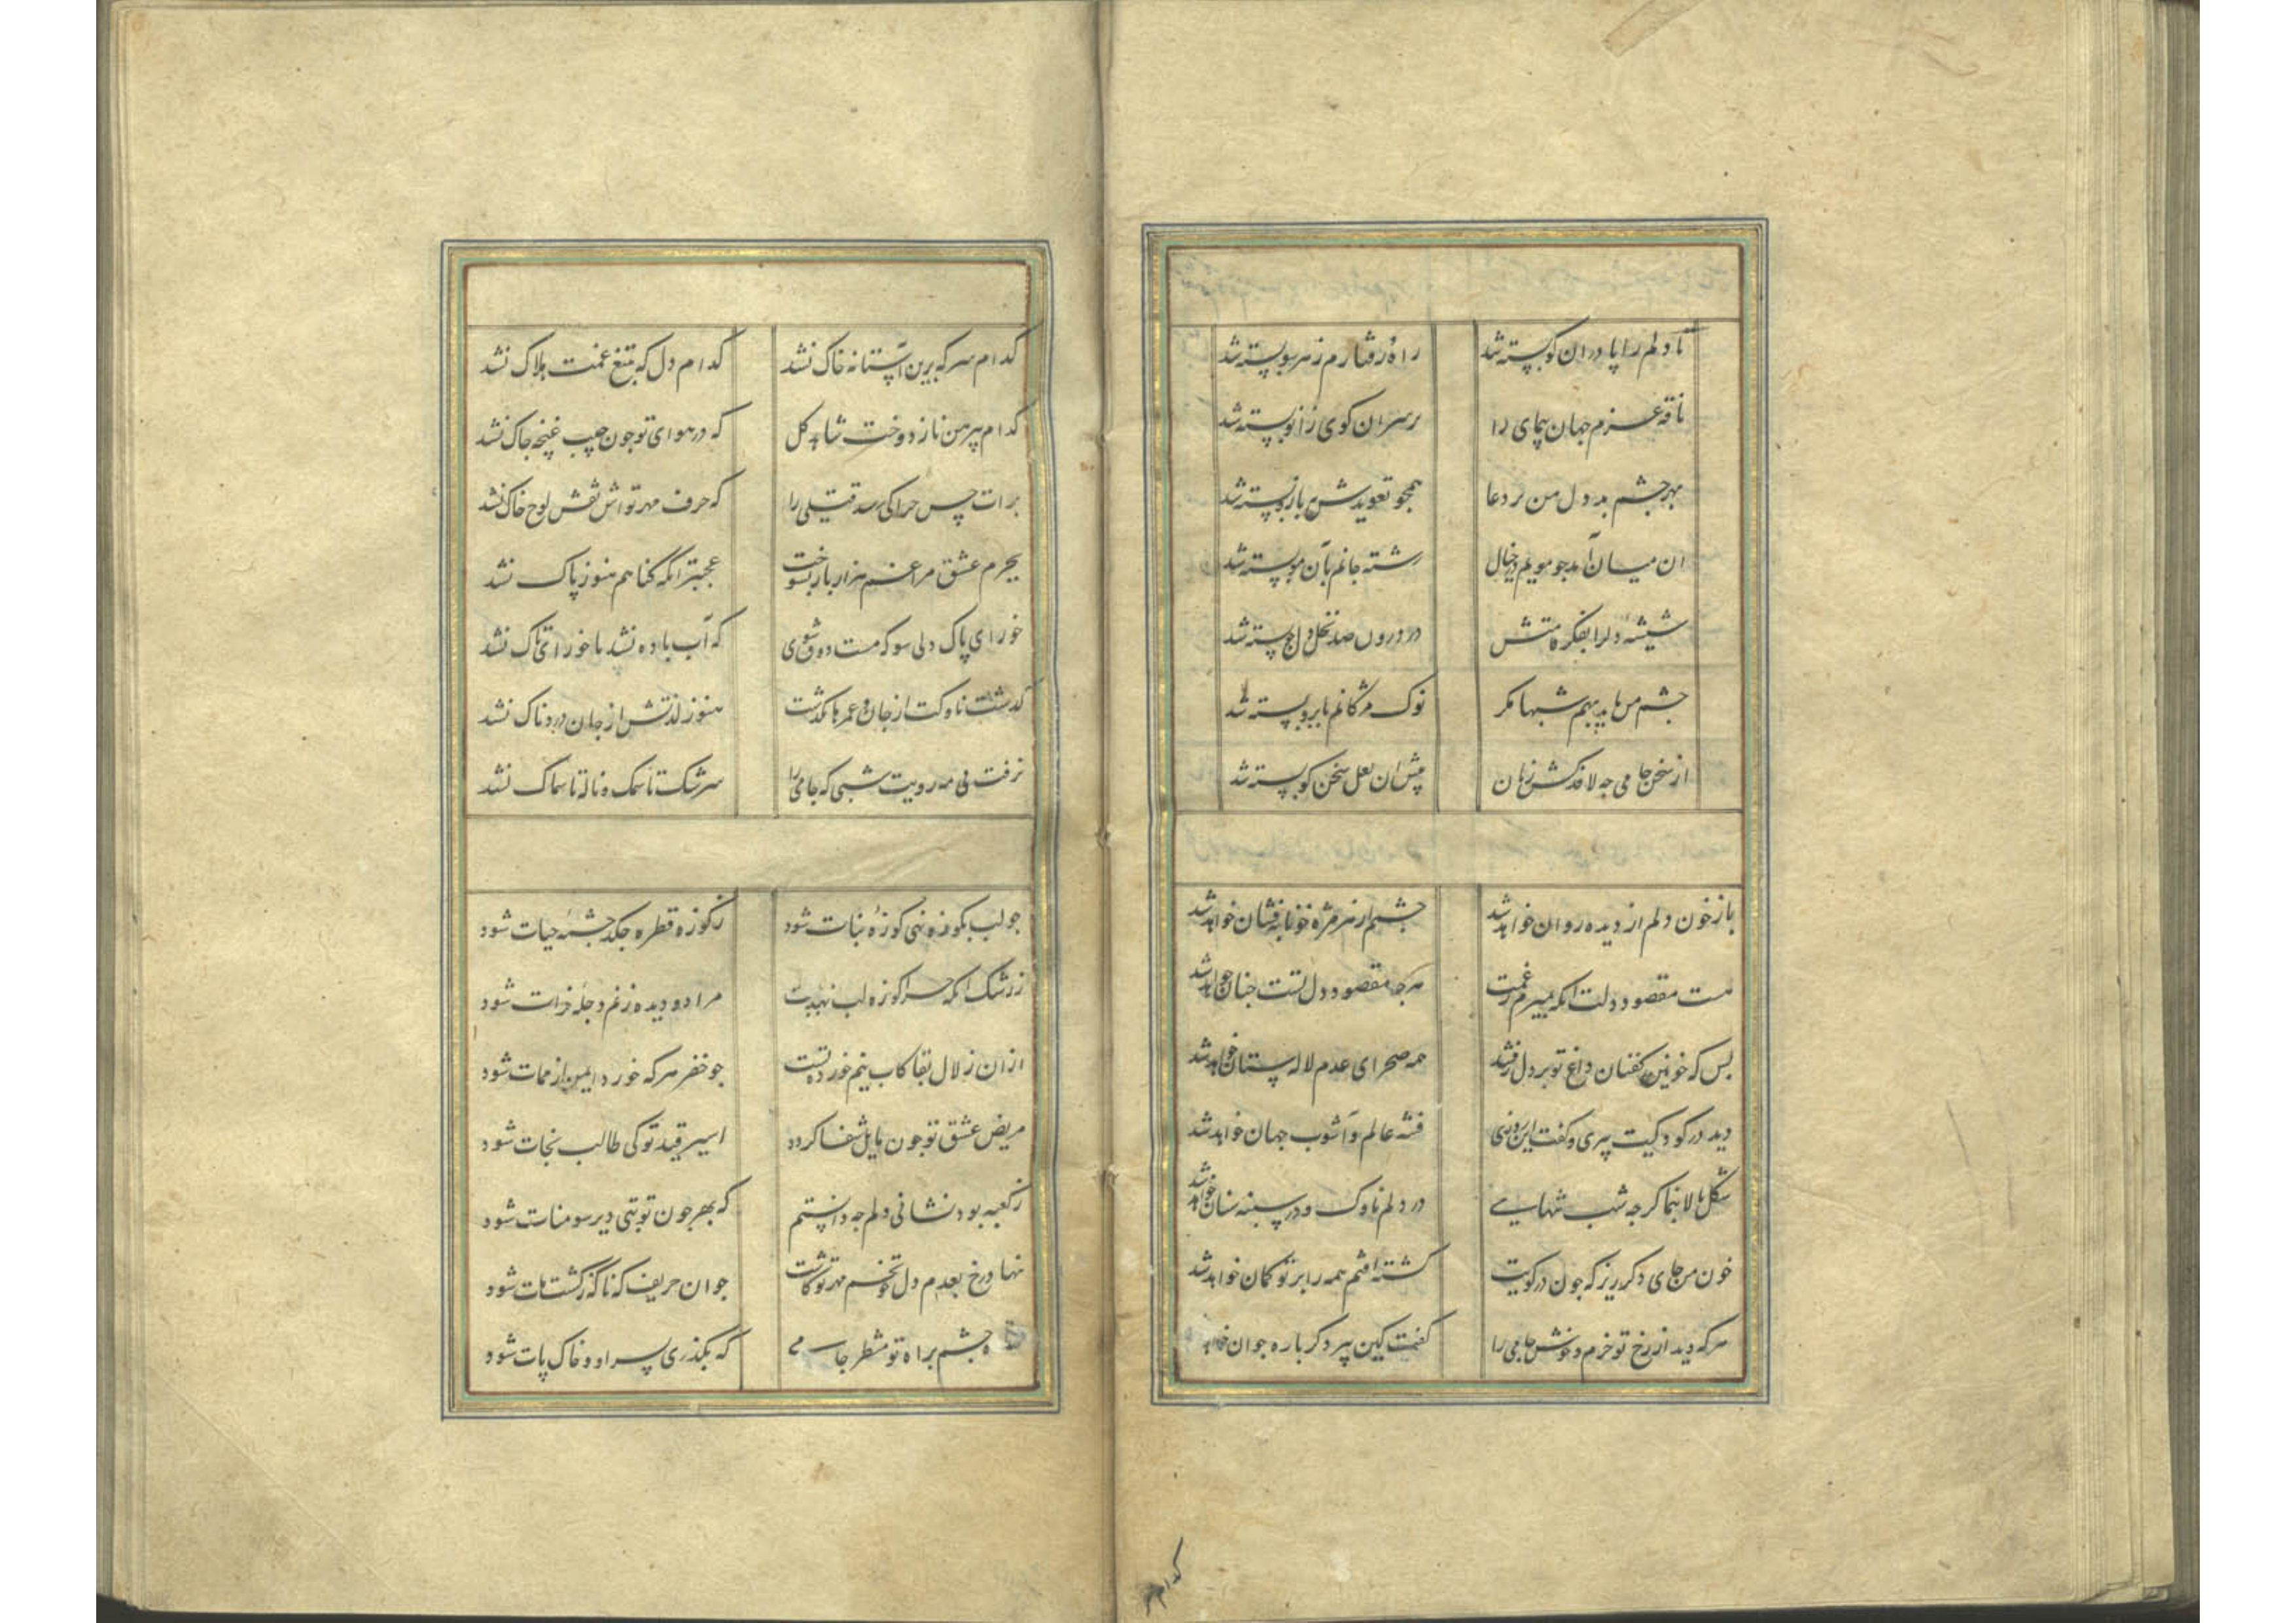 تا دلم را پا دران کو بسته شد
راه رفتارم ز هر سو بسته شد
ناقه عزم جهان پیمای را
بر سر ان کوی زانو بسته شد
بهر چشم بد دل من بر دعا
همچو تعویدش ببازو بسته شد
ان میان آمد جو مویم در خیال
رشته جانم بآن مو بسته شد
شیشه دلرا بفکر قامتش
در درون صد نخل دلجو بسته شد
جشم من ناید بهم شبها مکر
نوک مژکانم بابرو بسته شد
از سخن جامی جه لافد کش زبان
پیش ان لعل سخن کو بسته شد
باز خون دلم از دیده روان خواهد شد
جشم از هر مژه خونابه فشان خواهد شد
هست مقصود دلت انکه بمیرم ز غمت
هر جه مقصود دل تست جنان خواهد شد
بس که خونین کفنان داغ تو بر دل رفتند
همه صحرای عدم لاله ستان خواهد شد
دید در کودکیت پیری و کفت این روزی
فتنه عالم و آشوب جهان خواهد شد
شکل بالا بنما کر جه شب تنهایی
در دلم ناوک و در سینه سنان خواهد شد
خون من جای دکر ریز که جون در کویت
کشته افتم همه را بر تو کمان خواهد شد
هر که دید از رخ تو خرم و خوش جامی را
کفت کین پیر دکر باره جوان خواهد
کدام
کدام سر که برین آستانه خاک نشد
کدام دل که بتیغ غمت هلاک نشد
کدام پیرهن ناز دوخت شاهد کل
که در هوای تو جون جیب غنچه جاک نشد
برات حسن جرا کی رسد قتیلی را
که حرف مهر تو اش نقش لوح خاک نشد
بجرم عشق مرا غم هزار بار بسوخت
عجبتر انکه کناهم هنوز پاک نشد
خور ای پاک دلی سو که مست ذوق شوی
که آب باده نشد تا خور ای تاک نشد
کذشت ناوکت از جان و عمرها بکذشت
هنوز لذتش از جان دردناک نشد
نرفت بی مه رویت شبی که جامی را
سرشک تا سمک و ناله تا سماک نشد
جو لب بکوزه نهی کوزه نبات شود
ز کوزه قطره جکد جشمه حیات شود
ز رشک انکه جرا کوزه لب نهد بلبت
مرا دو دیده ز غم دجله و فرات شود
از ان زلال بقا کاب نیم خورده تست
جو خضر هر که خورد ایمن از ممات شود
مریض عشق تو جون مایل شفا کردد
اسیر قید تو کی طالب نجات شود
ز کعبه بود نشانی دلم جه دانستم
که بهر جون تو بتی دیر سومنات شود
نهاد رخ بعدم دل جو تخم مهر تو کاشت
جو ان حریف که ناکه ز کشت مات شود
جشم براه تو منتظر جامی
که بکذری بسر او و خاک پات شود